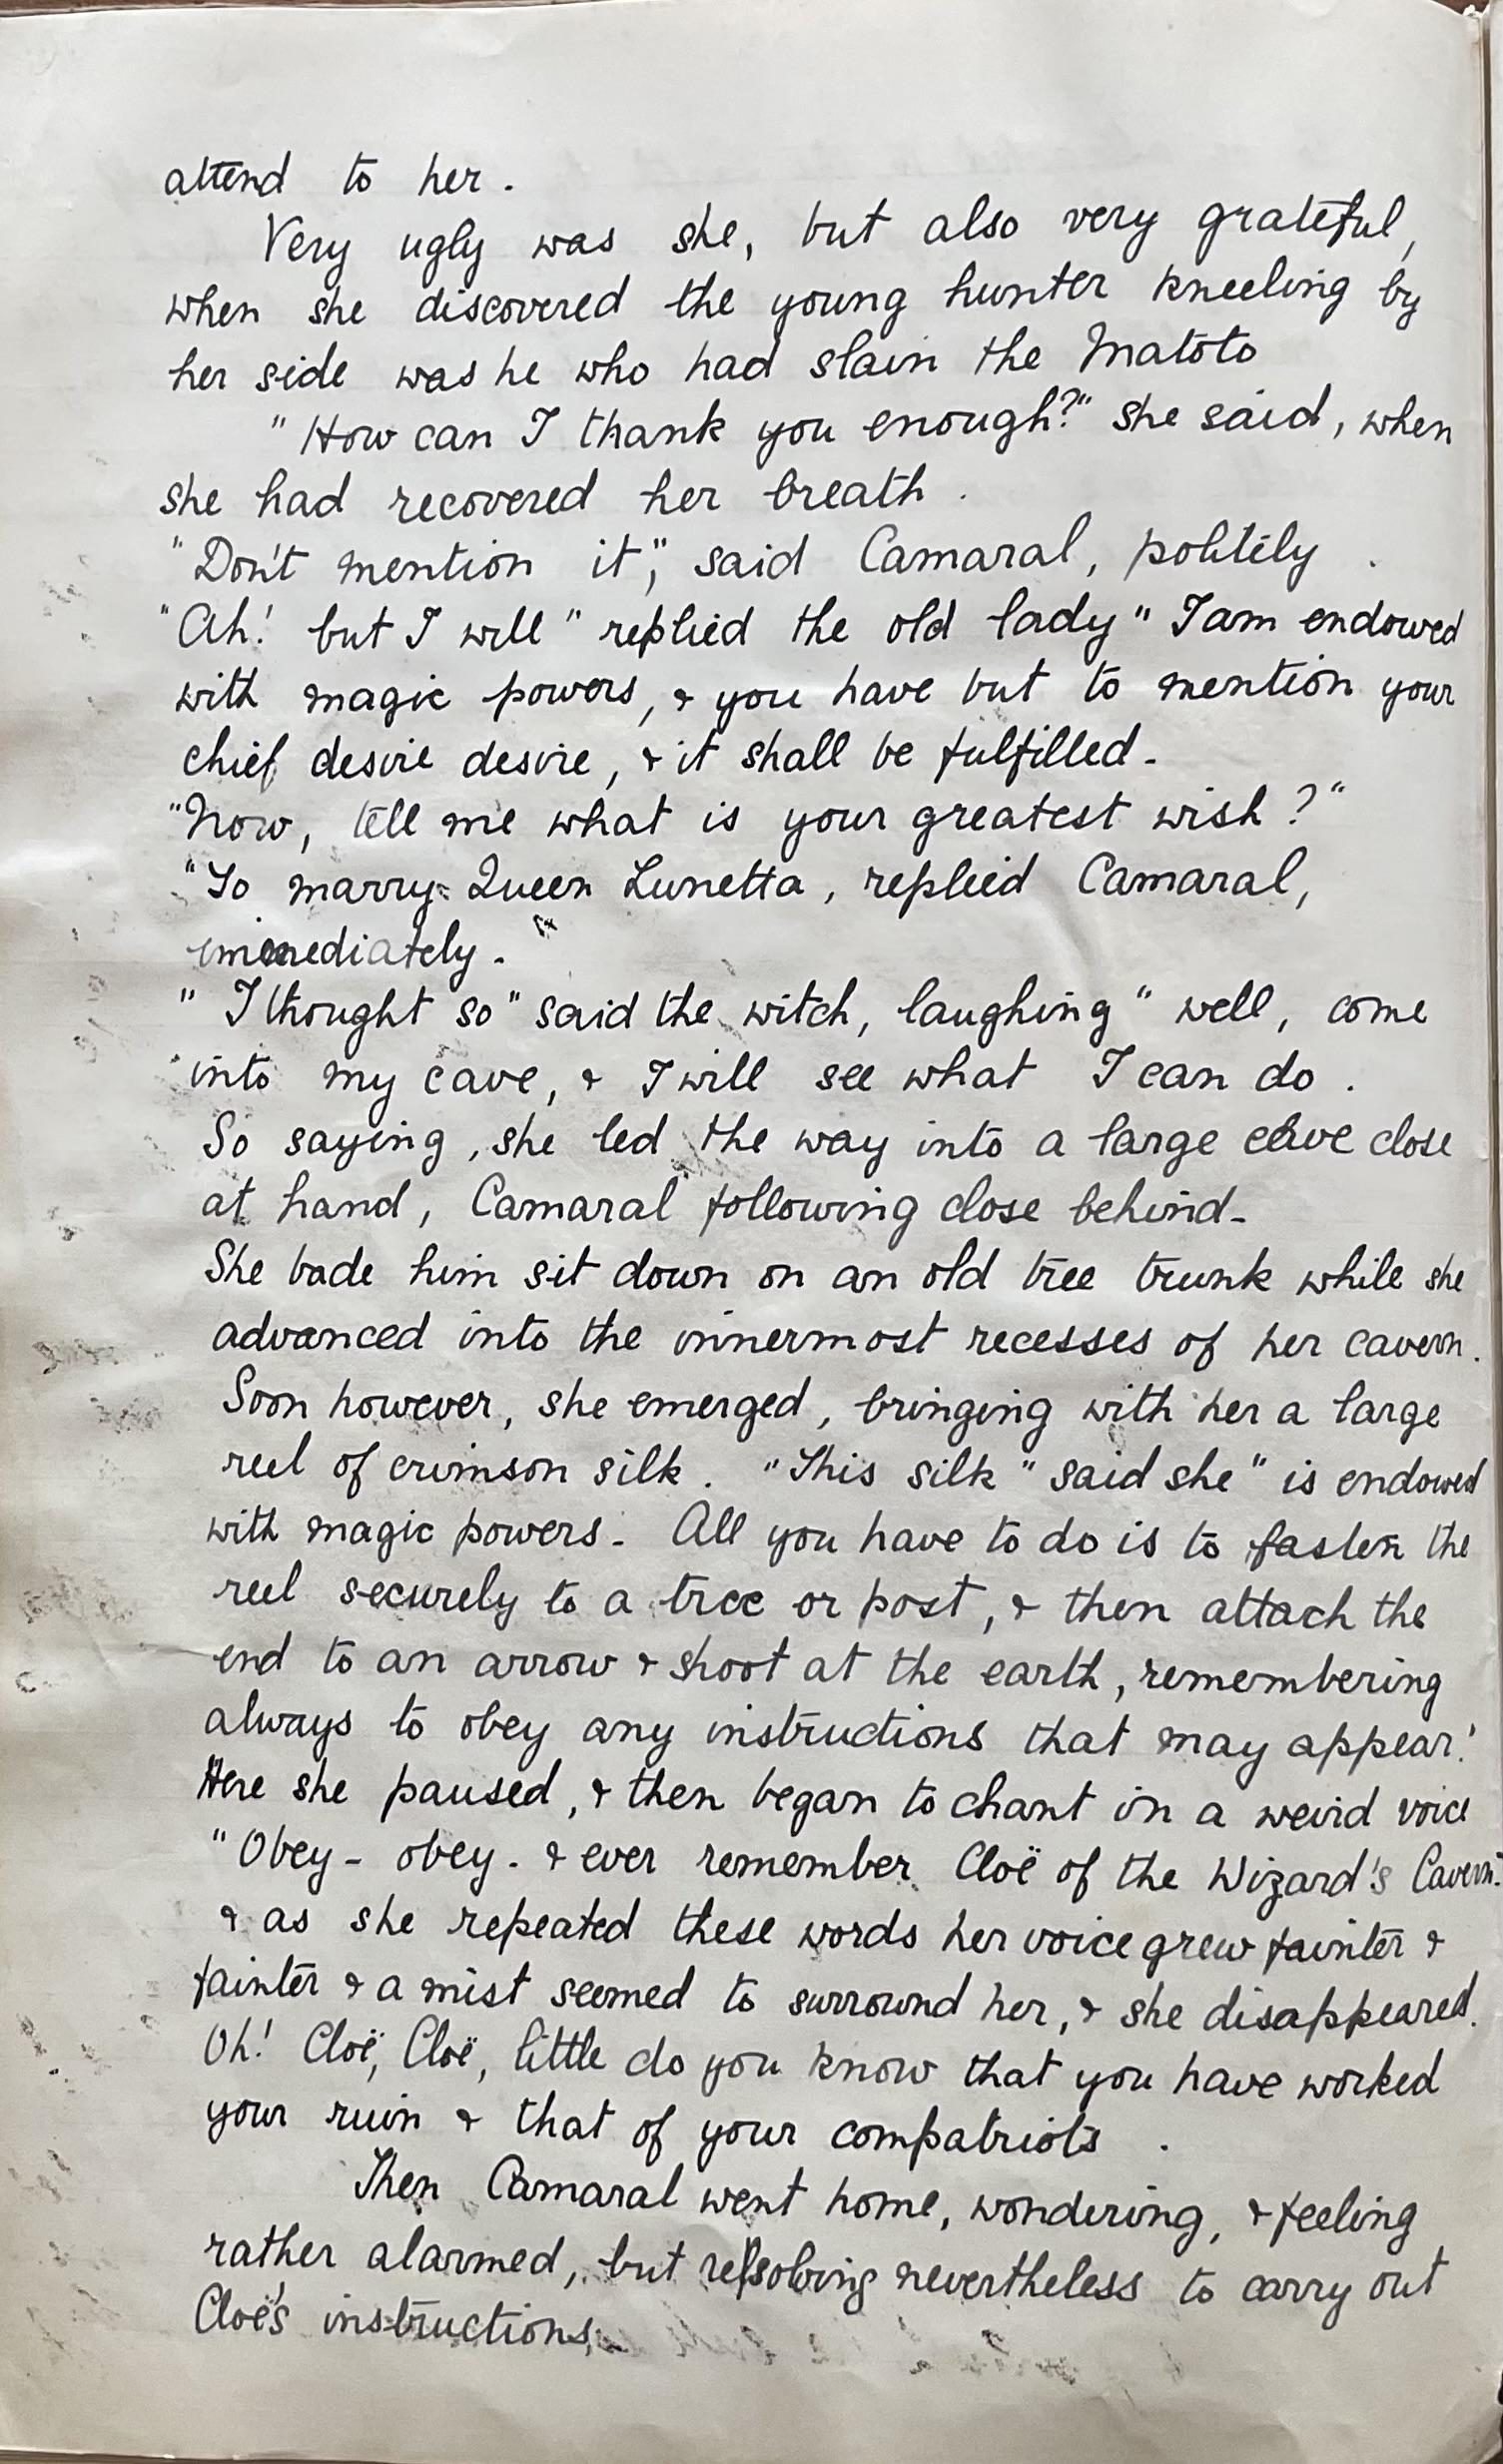 attend to her.
Very ugly was she, but also very grateful,
when she discovered the young hunter kneeling by
her side was he who had slain the Matoto
"How can I thank you enough?" she said, when
she had recovered her breath.
"Don't mention it", said Camaral, politely.
"Ah! but I will" replied the old lady "I am endowed
with magic powers, & you have but to mention your
chief desire desire, & it shall be fulfilled.
"Now, tell me what is your greatest wish?"
"To marry Queen Lunetta, replied Camaral,
immediately."
"I thought so" said the witch, laughing "well, come
into my cave, & I will see what I can do.
So saying, she led the way into a large cave close
at hand, Camaral following close behind.
She bade him sit down on an old tree trunk while she
advanced into the innermost recesses of her cavern.
Soon however, she emerged, bringing with her a large
reel of crimson silk. "This silk" said she "is endowed
with magic powers. All you have to do is to fasten the
reel securely to a tree or post, & then attach the
end to an arrow & shoot at the earth, remembering
always to obey any instructions that may appear!
Here she paused, & then began to chant in a weird voice
"Obey - obey - & ever remember Cloë of the Wizard's Cavern."
& as she repeated these words her voice grew fainter &
fainter & a mist seemed to surround her, & she disappeared.
Oh! Cloë, Cloë, little do you know that you have worked
your ruin & that of your compatriots.
Then Camaral went home, wondering, & feeling
rather alarmed, but resolving nevertheless to carry out
Cloë's instructions.